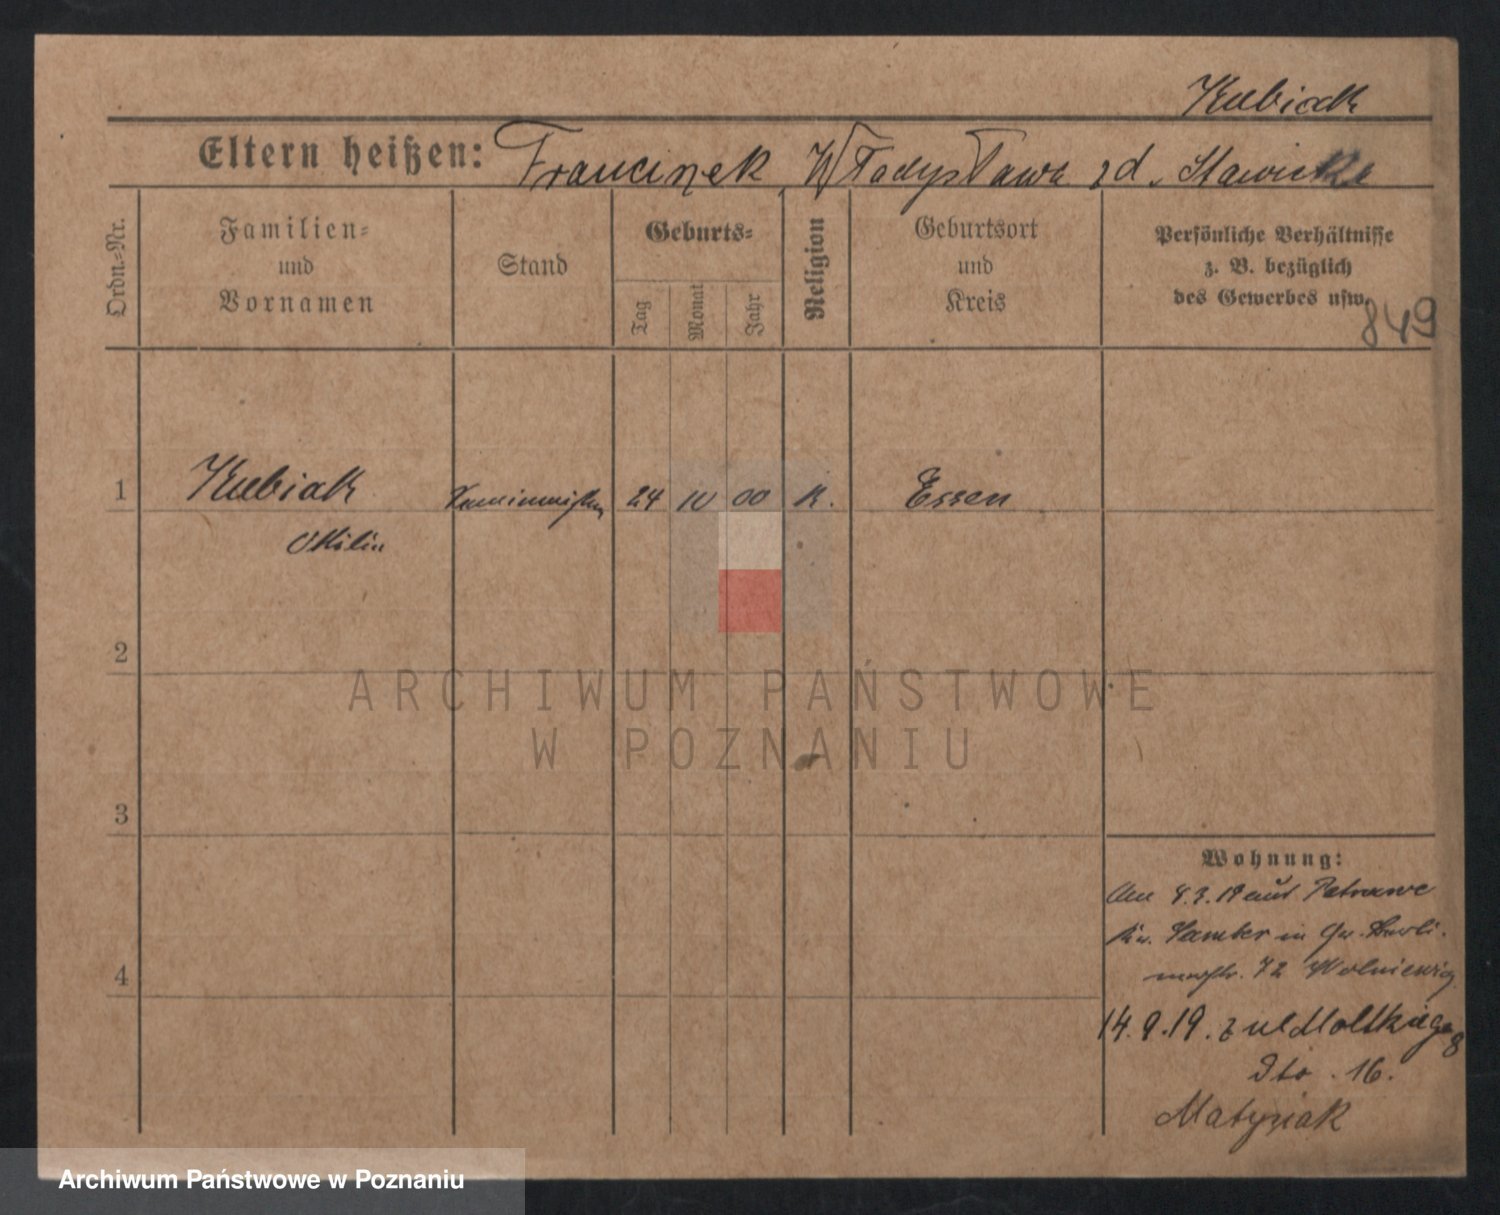 Kubiak
Eltern heißen: Franciszek, Władysława zd. Stawicka
Ordn.-Nr.
Familien-
und
Vornamen
Stand
Geburts-
Tag
Monat
Jahr
Religion
Geburtsort
und
Kreis
Persönliche Verhältnisse
z. B. bezüglich
des Gewerbes usw.
849
1 Kubiak 24 10 00 K. Essen
Ottilie
2
3
4
Wohnung:
Am 4.3.19 aus
Kr. Samter in
72
14.9.19. z ul Moltkiego 8
dto. 16.
Matysiak
ARCHIWUM PAŃSTWOWE
W POZNANIU
Archiwum Państwowe w Poznaniu